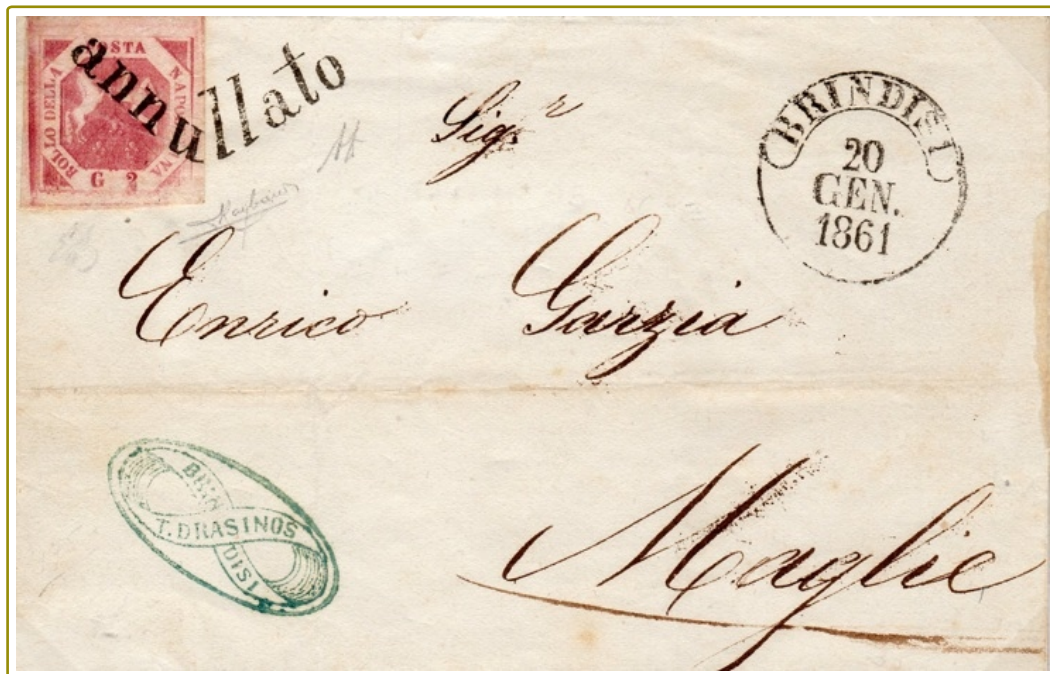 BOLLO DELLA POSTA NAPOLETANA
G 2
annullato
Sig.r
BRINDISI
20
GEN.
1861
Enrico Garzia
BRINDISI
T. DRASINOS
Maglie